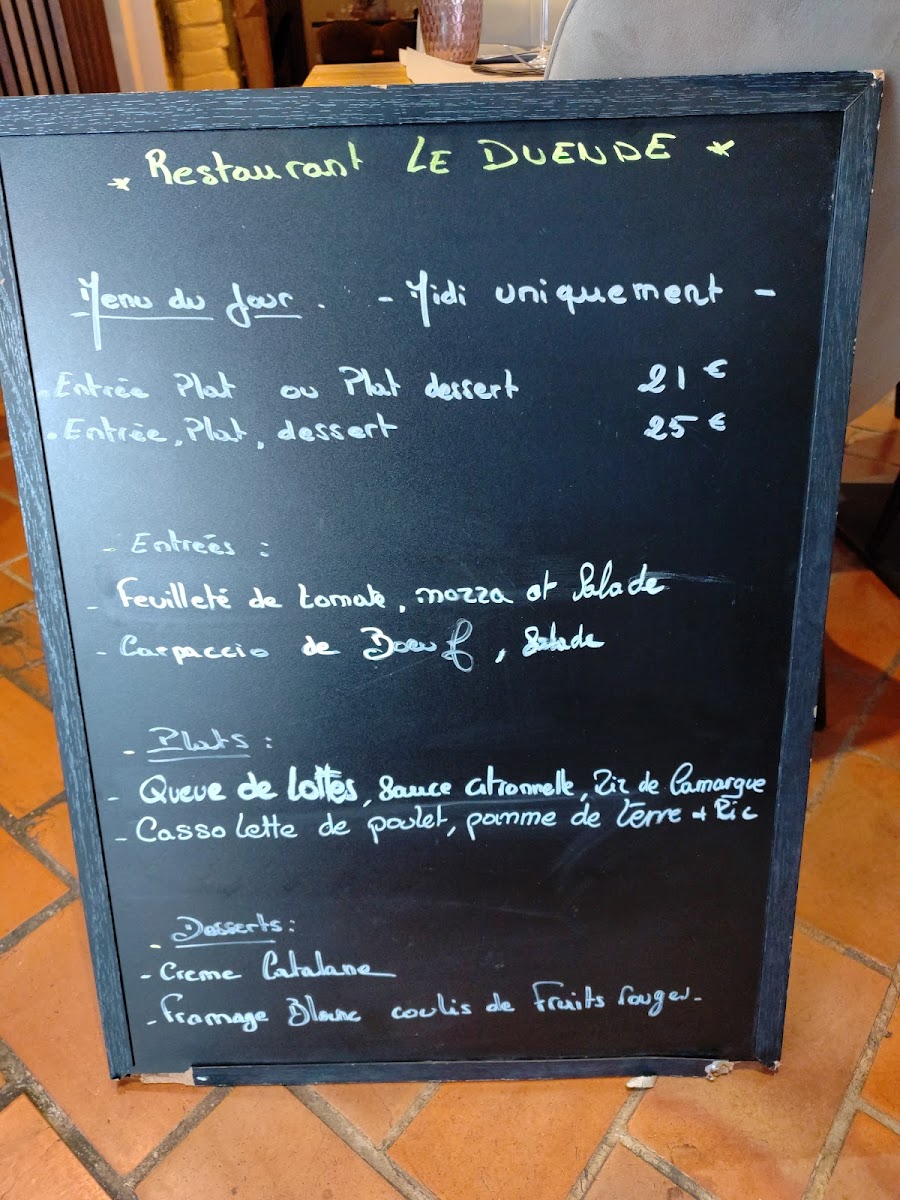 * Restaurant LE DUENDE *
Menu du Jour. - Midi uniquement -
. Entrée Plat ou Plat dessert 21 €
. Entrée, Plat, dessert 25 €
- Entrées :
- Feuilleté de tomate, mozza et Salade
- Carpaccio de Boeuf, Salade
- Plats :
- Queue de Lottes, Sauce citronnelle, Riz de Camargue
- Cassolette de poulet, pomme de terre + Riz
. Desserts :
- Creme Catalane
- Framage Blanc coulis de Fruits rouges-